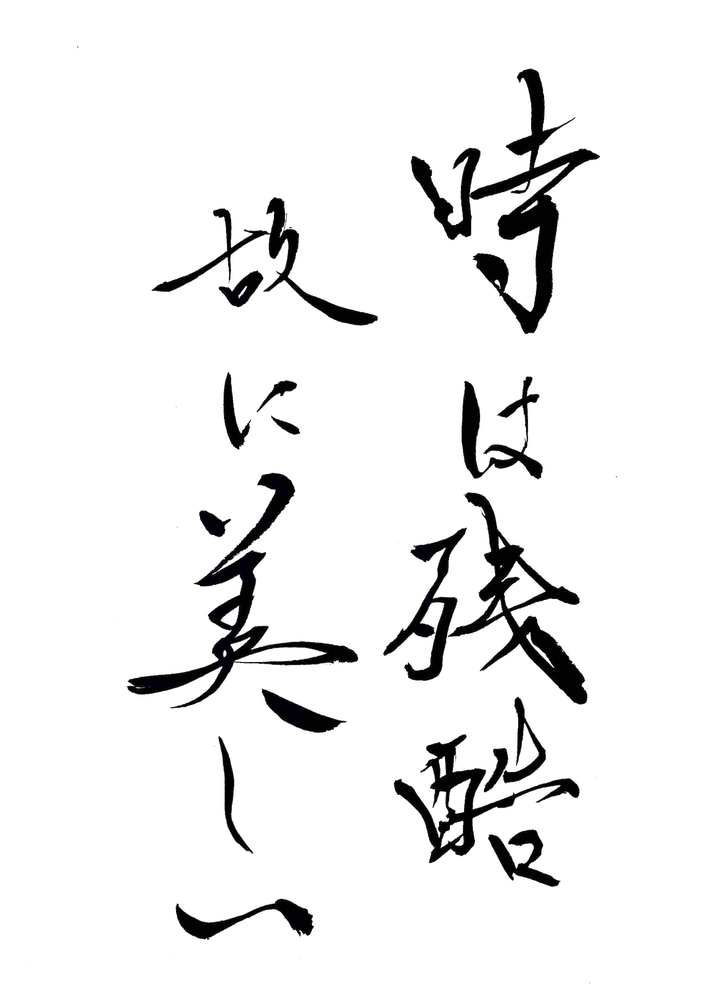 時は残酷
故に美しい